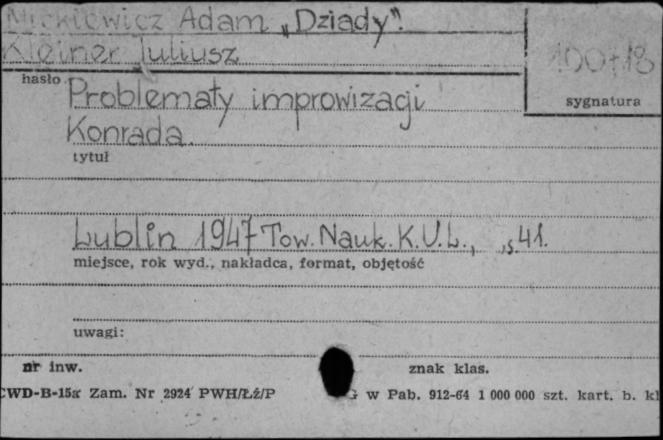 Mickiewicz Adam „Dziady".
Kleiner Juliusz
hasło
sygnatura
Problematy improwizacji
Konrada.
tytuł
Lublin 1947 Tow. Nauk. K.U.L., s. 41.
miejsce, rok wyd., nakładca, format, objętość
uwagi:
nr inw. znak klas.
CWD-B-15x Zam. Nr 2924 PWH/Łź/P G w Pab. 912-64 1 000 000 szt. kart. b. kl